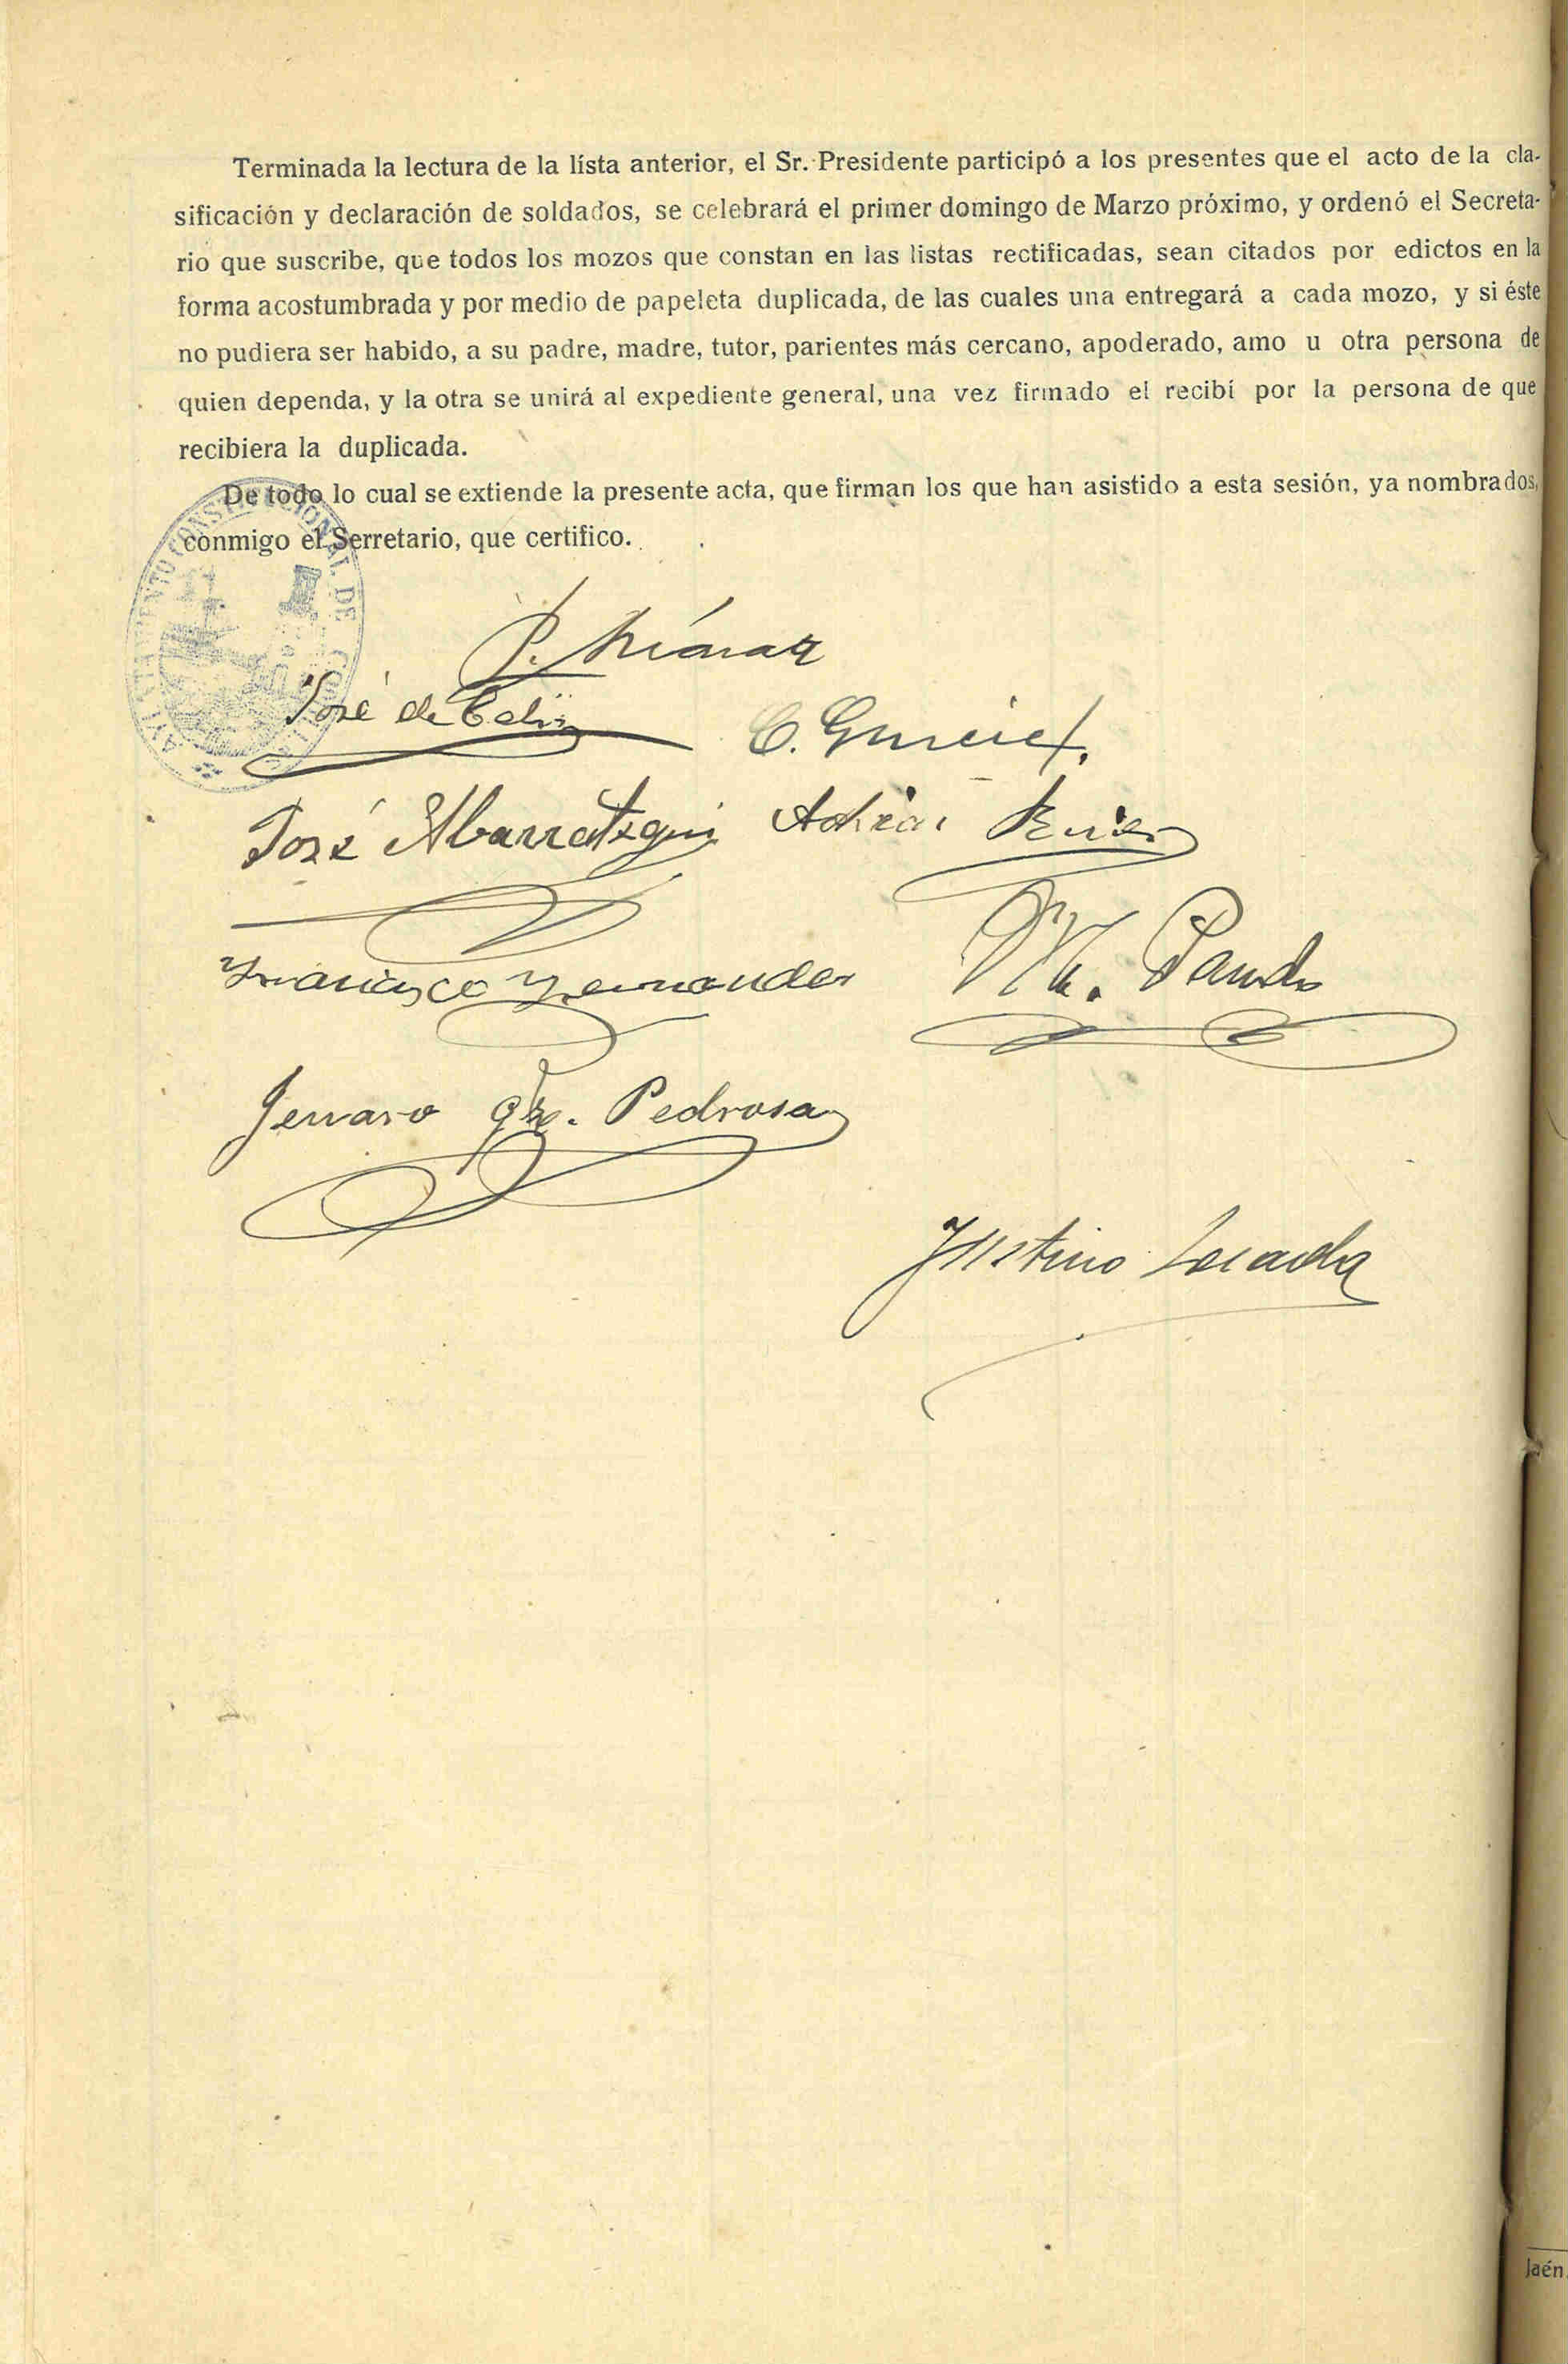 Terminada la lectura de la lísta anterior, el Sr. Presidente participó a los presentes que el acto de la cla-
sificación y declaración de soldados, se celebrará el primer domingo de Marzo próximo, y ordenó el Secreta-
rio que suscribe, que todos los mozos que constan en las listas rectificadas, sean citados por edictos en la
forma acostumbrada y por medio de papeleta duplicada, de las cuales una entregará a cada mozo, y si éste
no pudiera ser habido, a su padre, madre, tutor, parientes más cercano, apoderado, amo u otra persona de
quien dependa, y la otra se unirá al expediente general, una vez firmado el recibí por la persona de que
recibiera la duplicada.
De todo lo cual se extiende la presente acta, que firman los que han asistido a esta sesión, ya nombrados,
conmigo el Serretario, que certifico.
P.
José de Celis
C.
José Albarrategui
Francisco Fernandez
M. Pando
Jenaro gz. Pedrosa
Justino
Jaén.